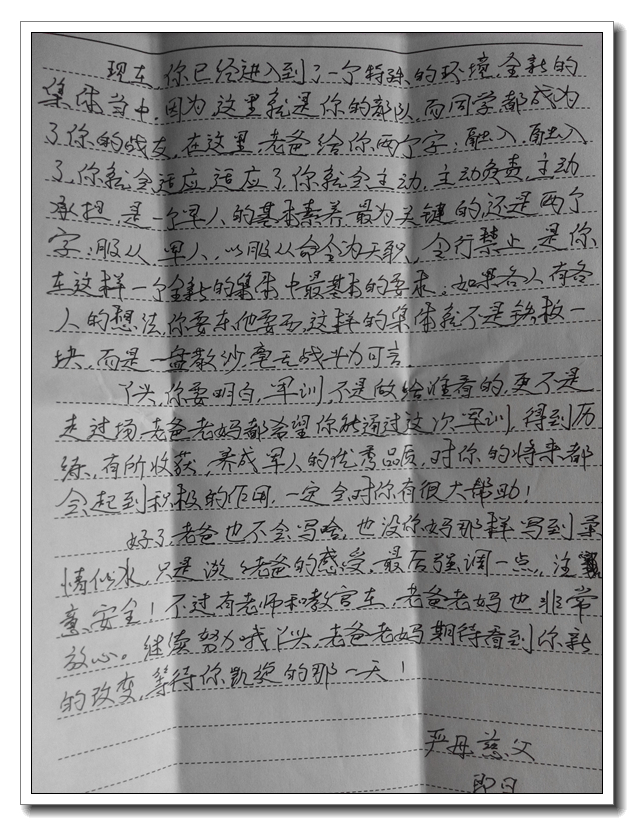 现在，你已经进入到了一个特殊的环境，全新的
集体当中，因为，这里就是你的部队，而同学都成为
了你的战友，在这里，老爸给你两个字：融入，融入
了，你就会适应，适应了，你就会主动，主动负责，主动
承担，是一个军人的基本素养，最为关键的，还是两个
字：服从，军人，以服从命令为天职，令行禁止，是你
在这样一个全新的集体中最基本的要求，如果各人有各
人的想法，你要东他要西，这样的集体就不是铁板一
块，而是一盘散沙，毫无战斗力可言。
丫头，你要明白，军训不是做给谁看的，更不是
走过场，老爸老妈都希望你能通过这次军训，得到历
练，有所收获，养成军人的优秀品质，对你的将来都
会起到积极的作用，一定会对你有很大帮助！
好了，老爸也不会写啥，也没你妈那样写到柔
情似水，只是谈谈老爸的感受，最后强调一点，注
意安全！不过，有老师和教官在，老爸老妈也非常
放心。继续努力哦丫头，老爸老妈期待看到你新
的改变，等待你凯旋的那一天！
严母慈父
即日